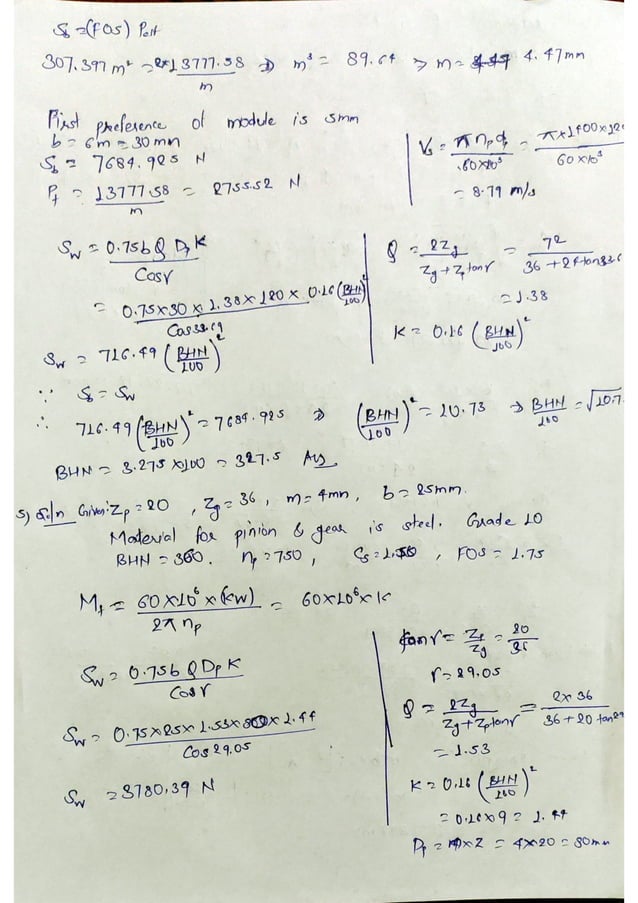 S_b = (FOS) Peff
307.397 m² = 2×13777.58 / m ⇒ m³ = 89.64 ⇒ m = 4.47 mm
First preference of module is 5mm
b = 6m = 30 mm
S_b = 7684.925 N
P_t = 13777.58 / m = 2755.52 N
V_s = π n_p d_p / 60×10³ = π×1400×120 / 60×10³
= 8.79 m/s
S_w = 0.75 b Q D_p K / Cos r
= 0.75×30×1.38×120×0.16 (BHN/100)² / Cos 33.69
S_w = 716.49 (BHN/100)²
Q = 2Zg / Zg + Zp tan r = 72 / 36 + 24 tan 33.6
= 1.38
K = 0.16 (BHN/100)²
∵ S_b = S_w
∴ 716.49 (BHN/100)² = 7684.925 ⇒ (BHN/100)² = 10.73 ⇒ BHN/100 = √10.7
BHN = 3.275 ×100 = 327.5 Ans
5) Soln Given: Zp = 20 , Zg = 36 , m = 4mm , b = 25mm.
Material for pinion & gear is steel. Grade 10
BHN = 300. n_p = 750 , Cs = 1.50 , FOS = 1.75
M_t = 60×10⁶ × (kW) / 2π n_p = 60×10⁶×K
S_w = 0.75 b Q Dp K / Cos r
S_w = 0.75×25×1.53×80×1.44 / Cos 29.05
S_w = 3780.39 N
tan r = Zp / Zg = 20 / 36
r = 29.05
Q = 2Zg / Zg + Zp tan r = 2×36 / 36 + 20 tan 29
= 1.53
K = 0.16 (BHN/100)²
= 0.16×9 = 1.44
Dp = m×Z = 4×20 = 80mm